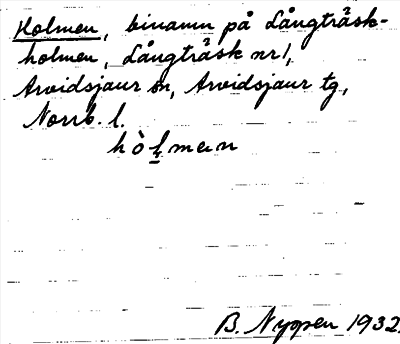 Holmen, binamn på Långträsk-
holmen, Långträsk nr 1,
Arvidsjaur sn, Arvidsjaur tg,
Norrb. l.
hòl̥mαn
B. Nygren 1932.